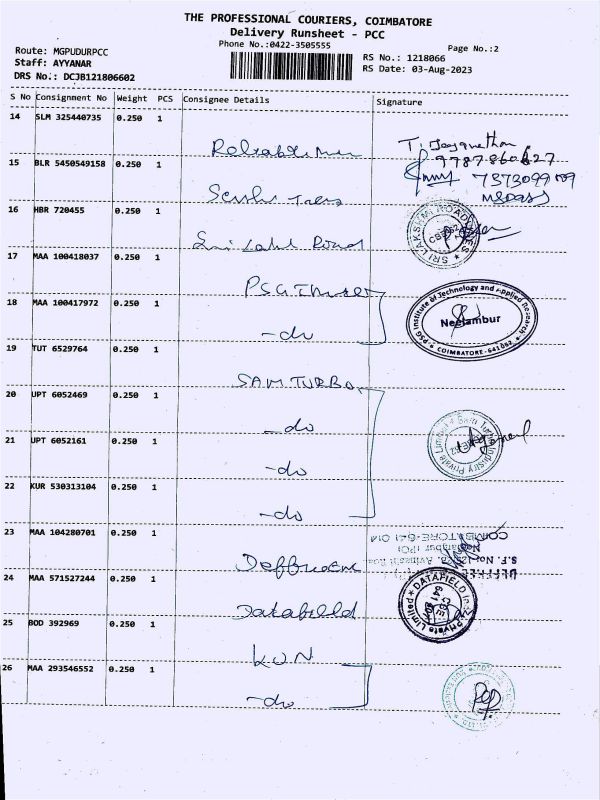 THE PROFESSIONAL COURIERS, COIMBATORE
Delivery Runsheet - PCC
Phone No.:0422-3505555
Page No.:2
Route: MGPUDURPCC
Staff: AYYANAR
DRS No.: DCJB121806602
RS No.: 1218066
RS Date: 03-Aug-2023
S No Consignment No Weight PCS Consignee Details Signature
14 SLM 325440735 0.250 1
15 BLR 5450549158 0.250 1
16 HBR 720455 0.250 1
17 MAA 100418037 0.250 1
PSG
18 MAA 100417972 0.250 1
-do
PSG Institute of Technology and Applied Research
Neelambur
COIMBATORE-641062
19 TUT 6529764 0.250 1
SAM TURBO
20 UPT 6052469 0.250 1
-do
21 UPT 6052161 0.250 1
-do
22 KUR 530313104 0.250 1
-do
23 MAA 104280701 0.250 1
COIMBATORE-641 014
24 MAA 571527244 0.250 1
Datafield
DATAFIELD India Private Limited
25 BOD 392969 0.250 1
26 MAA 293546552 0.250 1
-do
SRI LAKSHMI ROADLINES
Sam Turbo Industry Private Limited